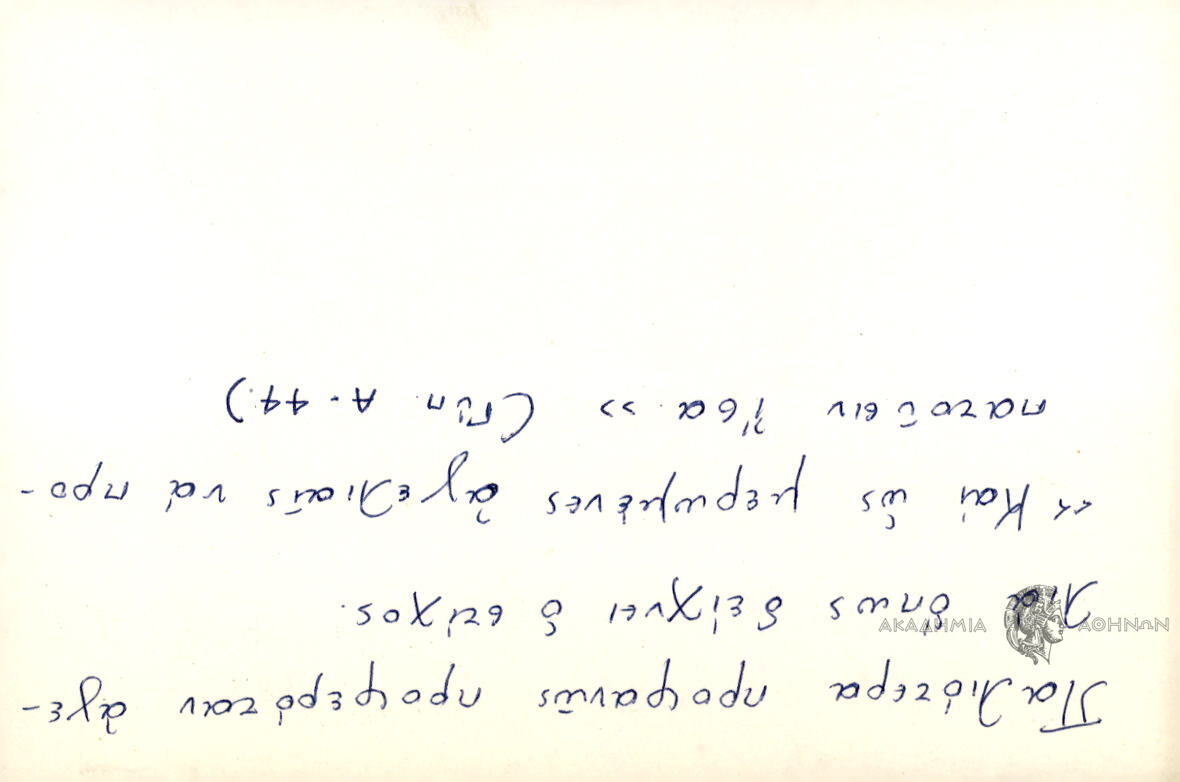 Παλιότερα προφανῶς προφερόταν ἀγε-
λιά ὅπως δείχνει ὁ στίχος.
«Καί ὡς μερωμένες ἀγελιαῖς νά προ-
πατοῦσιν ἴσα» (Γύπ. Α. 44)
ΑΚΑΔΗΜΙΑ ΑΘΗΝΩΝ